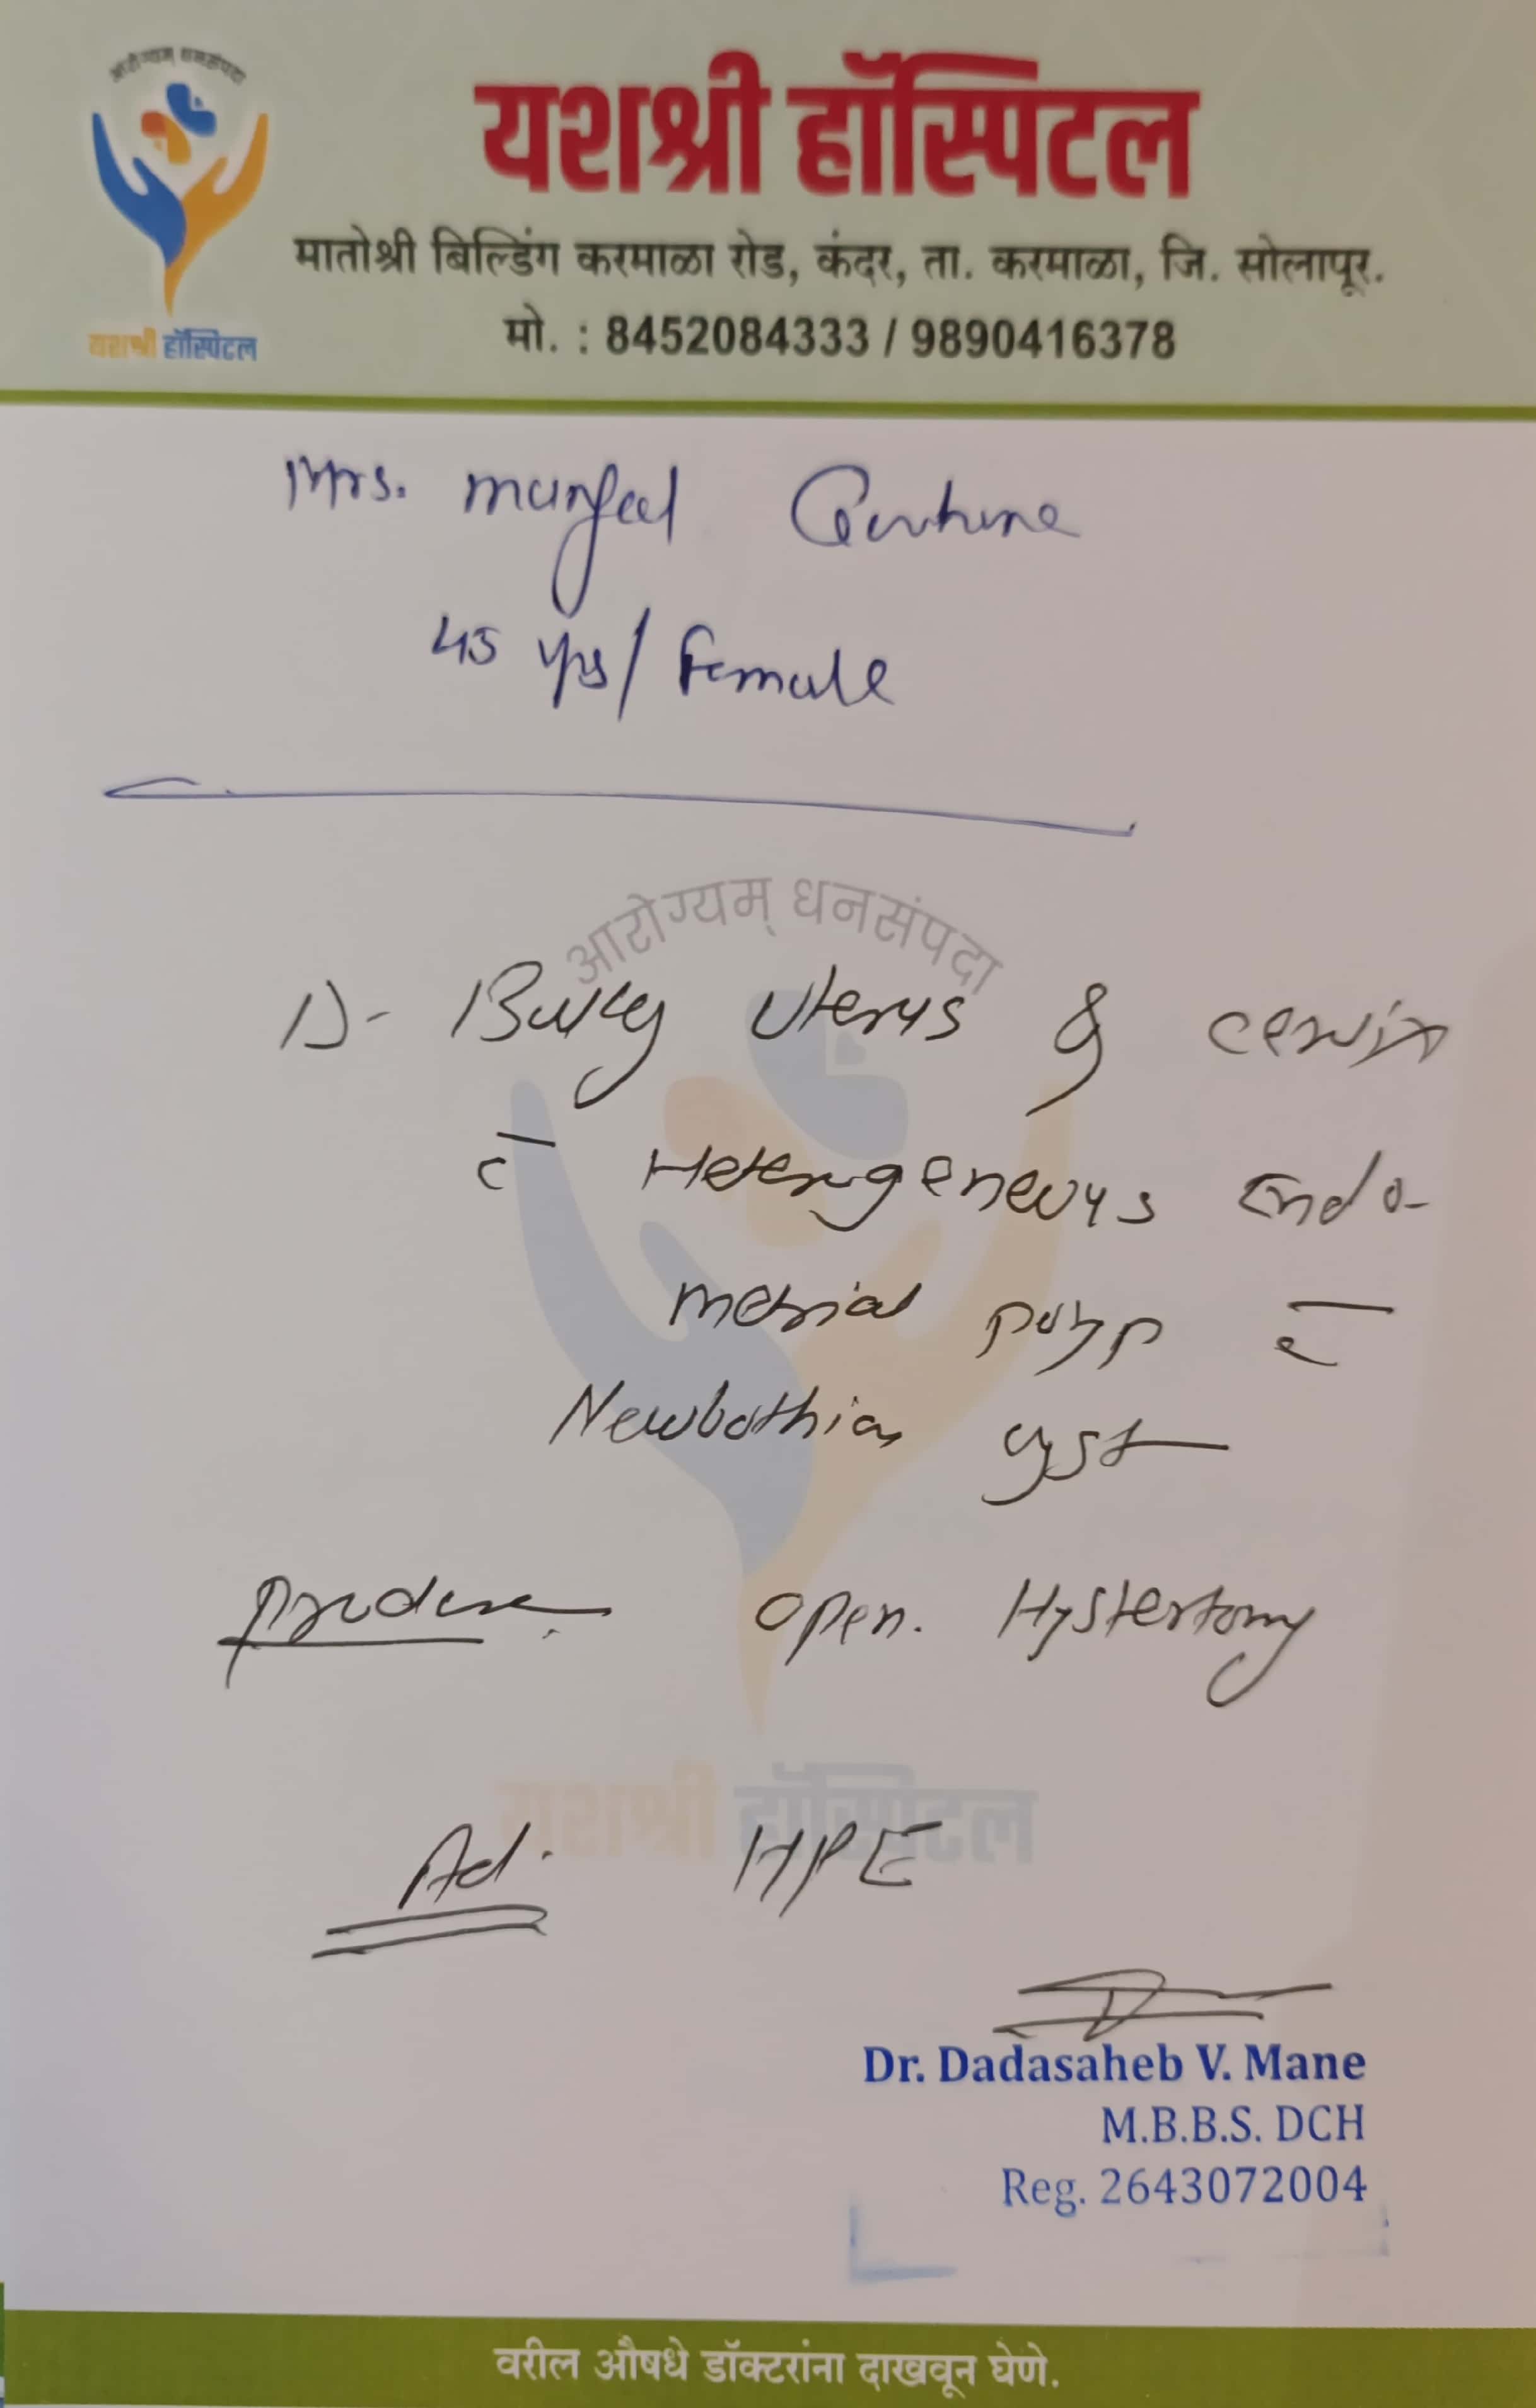 आरोग्यम् धनसंपदा
यशश्री हॉस्पिटल
मातोश्री बिल्डिंग करमाळा रोड, कंदर, ता. करमाळा, जि. सोलापूर.
मो. : 8452084333 / 9890416378
यशश्री हॉस्पिटल
Mrs.
45 yrs/ Female
आरोग्यम् धनसंपदा
D- Bulky Uterus & cervix
c̄ Heterogeneous Endo-
metrial polyp c̄
Newbothian cyst
open. Hystertomy
यशश्री हॉस्पिटल
Ad. HPE
Dr. Dadasaheb V. Mane
M.B.B.S. DCH
Reg. 2643072004
वरील औषधे डॉक्टरांना दाखवून घेणे.